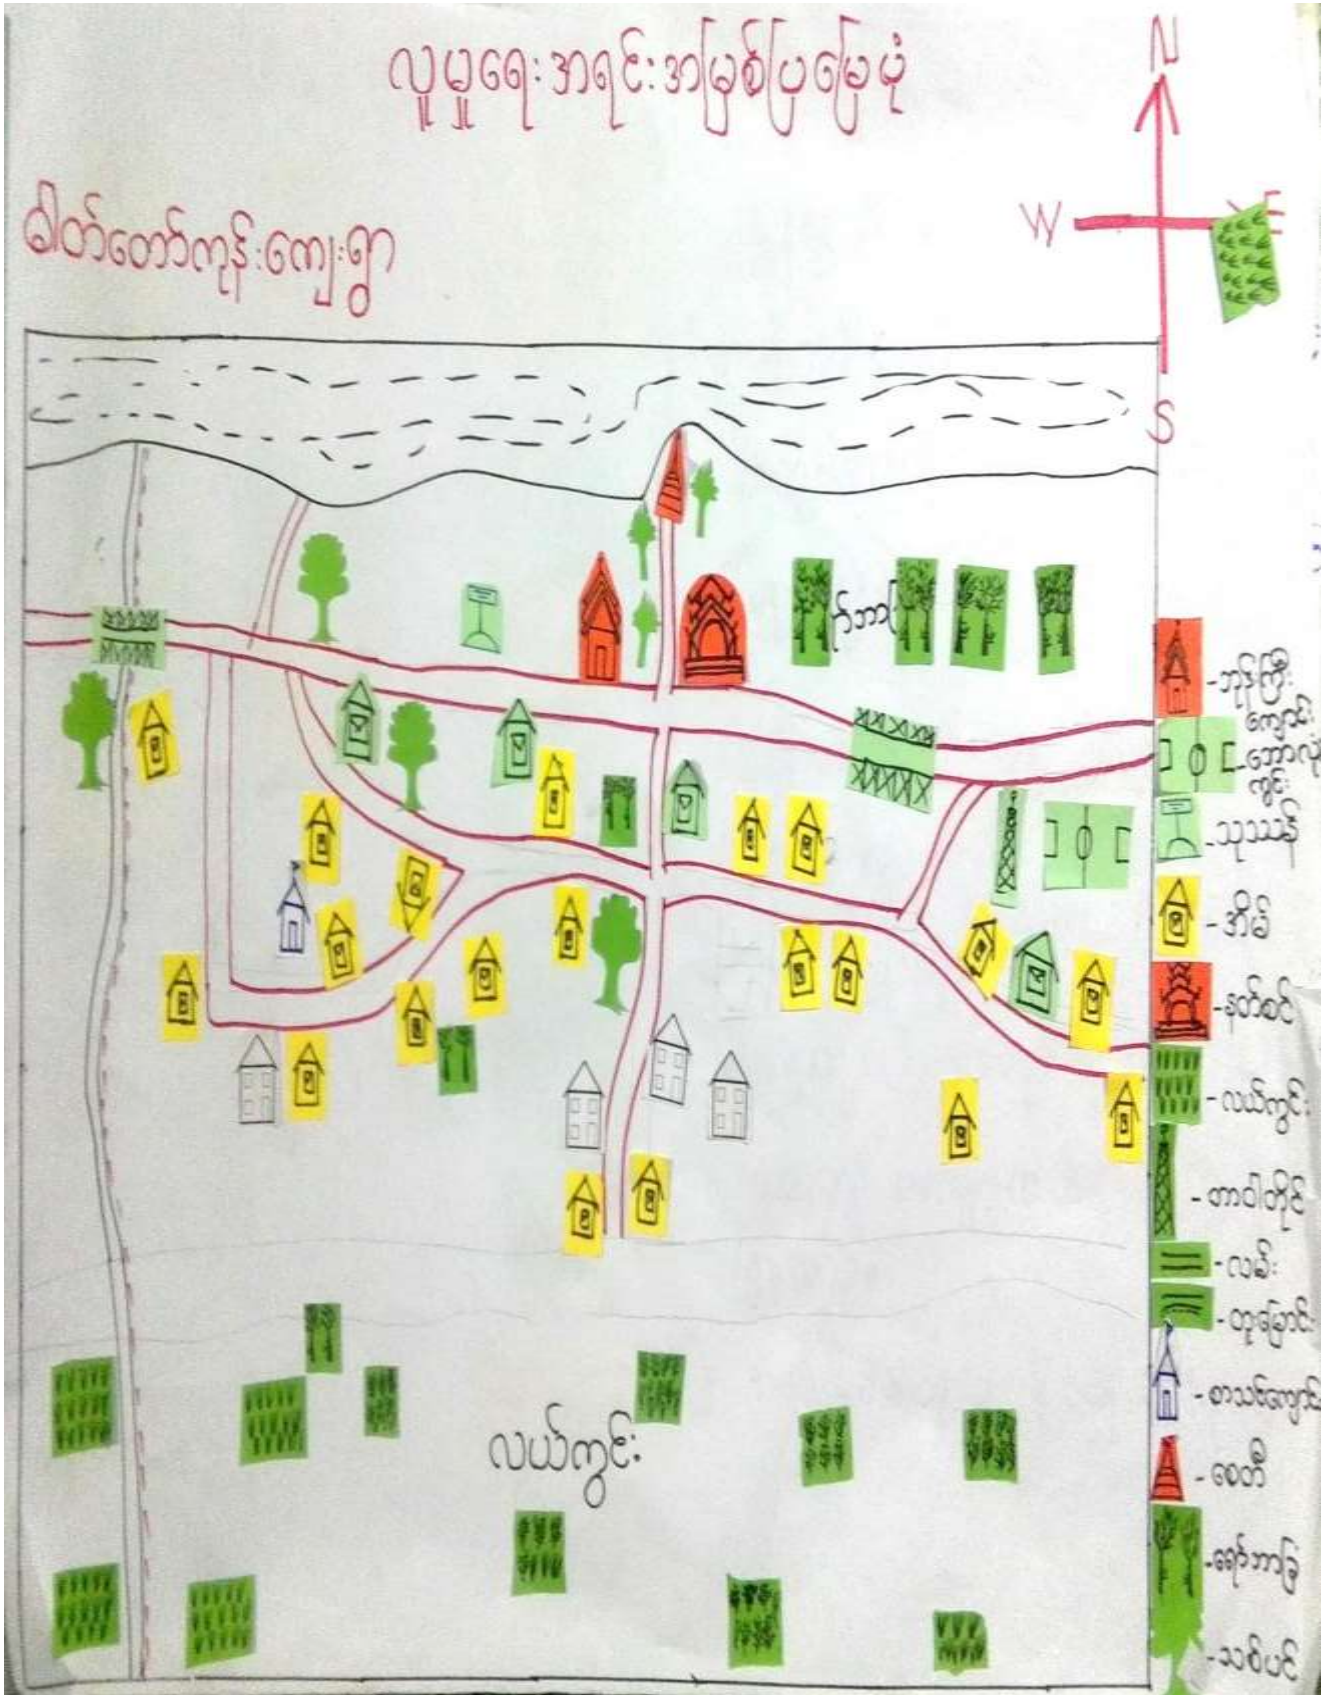 လူမှုရေးအရင်းအမြစ်ပြမြေပုံ
N
W
E
ဓါတ်တော်ကုန်းကျေးရွာ
S
-ဘုန်းကြီး
ကျောင်း
-ဘောလုံး
ကွင်း
-သုဿန်
-အိမ်
-နတ်စင်
-လယ်ကွင်း
-တာဝါတိုင်
-လမ်း
-တူးမြောင်း
-စာသင်ကျောင်း
-စေတီ
-ရော်ဘာခြံ
-သစ်ပင်
လယ်ကွင်း